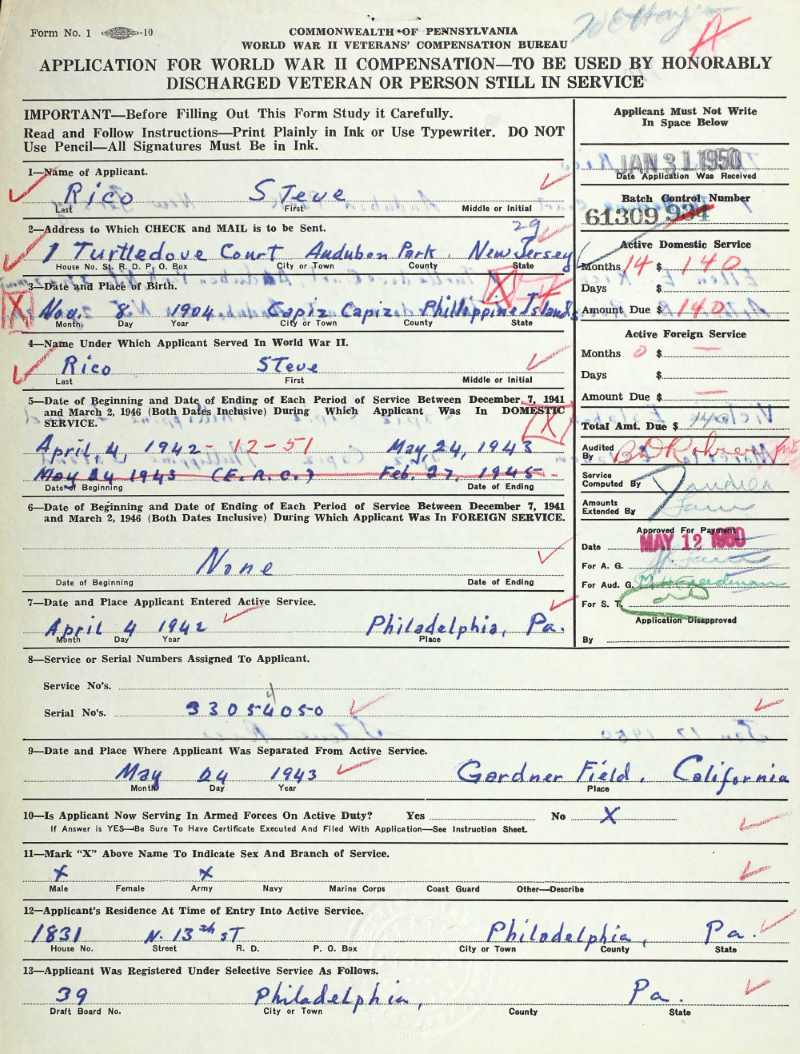 Form No. 1 10
COMMONWEALTH OF PENNSYLVANIA
WORLD WAR II VETERANS' COMPENSATION BUREAU
A
APPLICATION FOR WORLD WAR II COMPENSATION—TO BE USED BY HONORABLY
DISCHARGED VETERAN OR PERSON STILL IN SERVICE
IMPORTANT—Before Filling Out This Form Study it Carefully.
Read and Follow Instructions—Print Plainly in Ink or Use Typewriter. DO NOT
Use Pencil—All Signatures Must Be in Ink.
1—Name of Applicant.
Rico Steve
Last First Middle or Initial
2—Address to Which CHECK and MAIL is to be Sent.
29
1 Turtledove Court Audubon Park. New Jersey
House No. St. R. D. P. O. Box City or Town County State
3—Date and Place of Birth.
X X
Nov. 8 1904 Capiz Capiz Phillippine Islands
Month Day Year City or Town County State
4—Name Under Which Applicant Served In World War II.
Rico Steve
Last First Middle or Initial
5—Date of Beginning and Date of Ending of Each Period of Service Between December 7, 1941
and March 2, 1946 (Both Dates Inclusive) During Which Applicant Was In DOMESTIC
SERVICE.
X
April, 4, 1942 - 12-51 May, 24, 1943
May 24 1943 (E.R.C.) Feb. 27, 1945
Date of Beginning Date of Ending
6—Date of Beginning and Date of Ending of Each Period of Service Between December 7, 1941
and March 2, 1946 (Both Dates Inclusive) During Which Applicant Was In FOREIGN SERVICE.
None
Date of Beginning Date of Ending
7—Date and Place Applicant Entered Active Service.
April 4 1942 Philadelphia, Pa.
Month Day Year Place
Applicant Must Not Write
In Space Below
JAN 31 1950
Date Application Was Received
Batch Control Number
61309 934
Active Domestic Service
Months 14 $ 140
Days $
Amount Due $ 140
Active Foreign Service
Months 0 $ —
Days $
Amount Due $ —
Total Amt. Due $ 140
Audited
By
Service
Computed By
Amounts
Extended By
Approved For Payment
Date MAY 12 1950
For A. G.
For Aud. G.
For S. T.
Application Disapproved
By
8—Service or Serial Numbers Assigned To Applicant.
Service No's.
4
Serial No's. 33054050
9—Date and Place Where Applicant Was Separated From Active Service.
May 24 1943 Gardner Field, California
Month Day Year Place
10—Is Applicant Now Serving In Armed Forces On Active Duty? Yes No X
If Answer is YES—Be Sure To Have Certificate Executed And Filed With Application—See Instruction Sheet.
11—Mark "X" Above Name To Indicate Sex and Branch of Service.
X X
Male Female Army Navy Marine Corps Coast Guard Other—Describe
12—Applicant's Residence At Time of Entry Into Active Service.
1831 N. 13th ST Philadelphia, Pa.
House No. Street R. D. P. O. Box City or Town County State
13—Applicant Was Registered Under Selective Service As Follows.
39 Philadelphia, Pa.
Draft Board No. City or Town County State